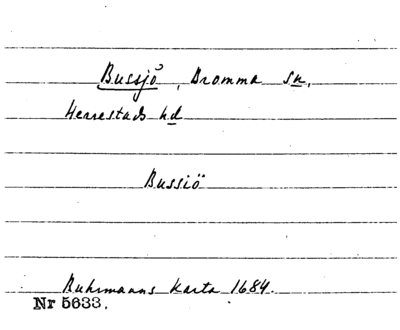 Bussjö, Bromma sn,
Herrestads hd
Bussiö
Buhrmanns karta 1684.
Nr 5633.